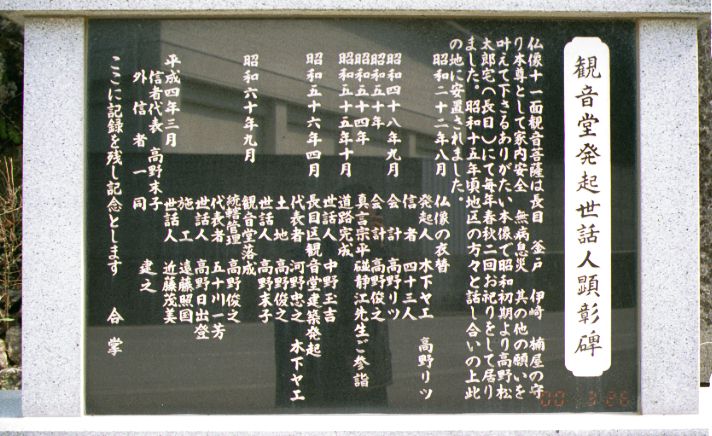 観音堂発起世話人顕彰碑
仏像十一面観音菩薩は長目 釜戸 伊崎 楠屋の守
り本尊として家内安全 無病息災 其の他の願いを
叶えて下さるありがたい本像で昭和初期より高野松
太郎宅(長目)にて毎年春秋二回お祀りをして居り
ました。昭和十五年頃地区の方々と話し合いの上此
の地に安置されました。
昭和二十二年八月 仏像の衣替
発起人 木下ヤエ 高野リツ
信者 四十三人
昭和四十八年九月 会計 高野リツ
昭和五十年 会計 高野俊之
昭和五十四年 真言宗平 碰静江先生ご参詣
昭和五十五年十月 道路完成
世話人 中野玉吉
昭和五十六年四月 長目区観音堂建築発起
代表者 河野忠之 木下ヤエ
土地 高野俊之
世話人 高野末子
昭和六十年九月 観音堂落成
統轄管理 高野俊之
代表者 五十川一芳
世話人 高野日出登
施工 遠藤照国
平成四年三月 世話人 近藤茂美
信者代表 高野末子
外信者一同 建之
ここに記録を残し記念とします 合掌
00 3 26